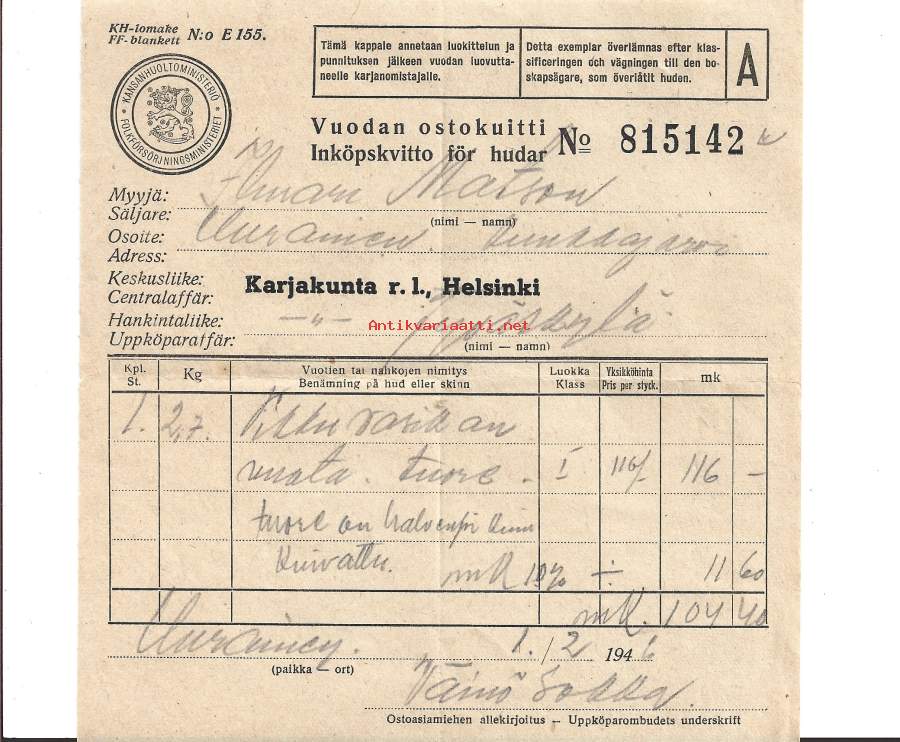 KH-lomake
FF-blankett N:o E 155.
KANSANHUOLTOMINISTERIÖ
FOLKFÖRSÖRJNINGSMINISTERIET
Tämä kappale annetaan luokittelun ja
punnituksen jälkeen vuodan luovutta-
neelle karjanomistajalle.
Detta exemplar överlämnas efter klas-
sificeringen och vägningen till den bo-
skapsägare, som överlåtit huden.
A
Vuodan ostokuitti
Inköpskvitto för hudar No 815142
Myyjä: Ilmari Matson
Säljare:
(nimi — namn)
Osoite: Uurainen.
Adress:
Keskusliike:
Centralaffär: Karjakunta r. l., Helsinki
Hankintaliike: —„— Jyväskylä
Uppköparaffär:
(nimi — namn)
Antikvariaatti.net
Kpl. St. Kg Vuotien tai nahkojen nimitys Benämning på hud eller skinn Luokka Klass Yksikköhinta Pris per styck. mk
1. 2,7. Pikku vasikan
vuota. tuore - I 116/- 116 —
tuore on halvempi kuin
kuivattu. mk 10% ÷ 11 60
mk. 104 40
Uurainen. 1./2 1946
(paikka — ort)
Väinö Sokka.
Ostoasiamiehen allekirjoitus — Uppköparombudets underskrift